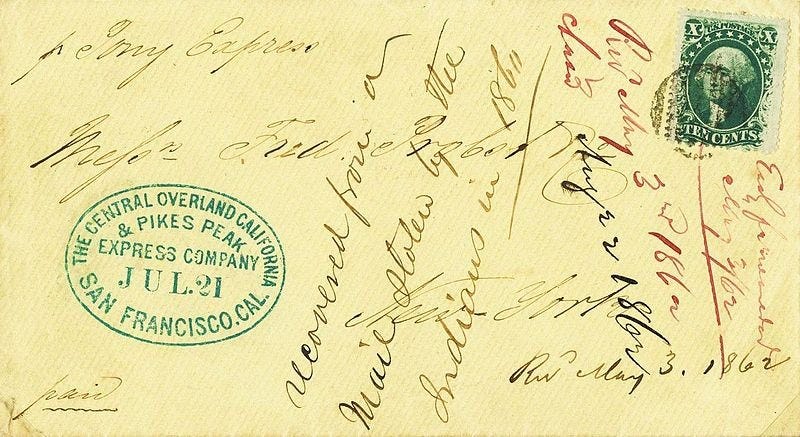 p Pony Express
Messrs Fred. Probst & Co
New-York
paid
THE CENTRAL OVERLAND CALIFORNIA
& PIKES PEAK
EXPRESS COMPANY
JUL. 21
SAN FRANCISCO. CAL.
recovered from a
Mail stolen by the
Indians in 1860
Recd May 3rd 1862
May 3/62
Recd May 3. 1862
X U.S. POSTAGE X
TEN CENTS